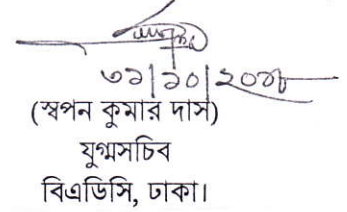 ৩১/১০/২০১৮
(স্বপন কুমার দাস)
যুগ্মসচিব
বিএডিসি, ঢাকা।